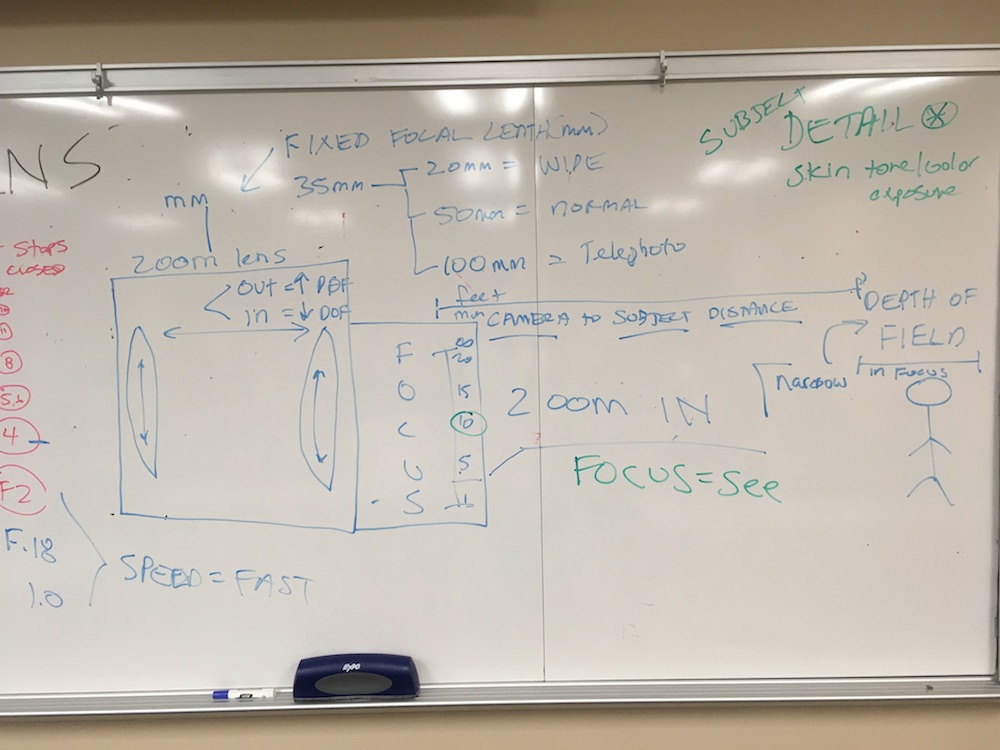 ENS
FIXED FOCAL LENTH (mm)
35mm
20mm = WIDE
50mm = NORMAL
100mm = Telephoto
SUBJECT
DETAIL
skin tone/color
exposure
mm
zoom lens
OUT = ↑ DOF
in = ↓ DOF
Stops
CLOSED
11
8
5.6
4
F2
F.18
1.0
SPEED = FAST
feet
min
CAMERA to SUBJECT DISTANCE
F
O
C
U
S
∞
20
15
10
5
ZOOM IN
FOCUS = See
DEPTH OF
FIELD
narrow
in Focus
EXPO